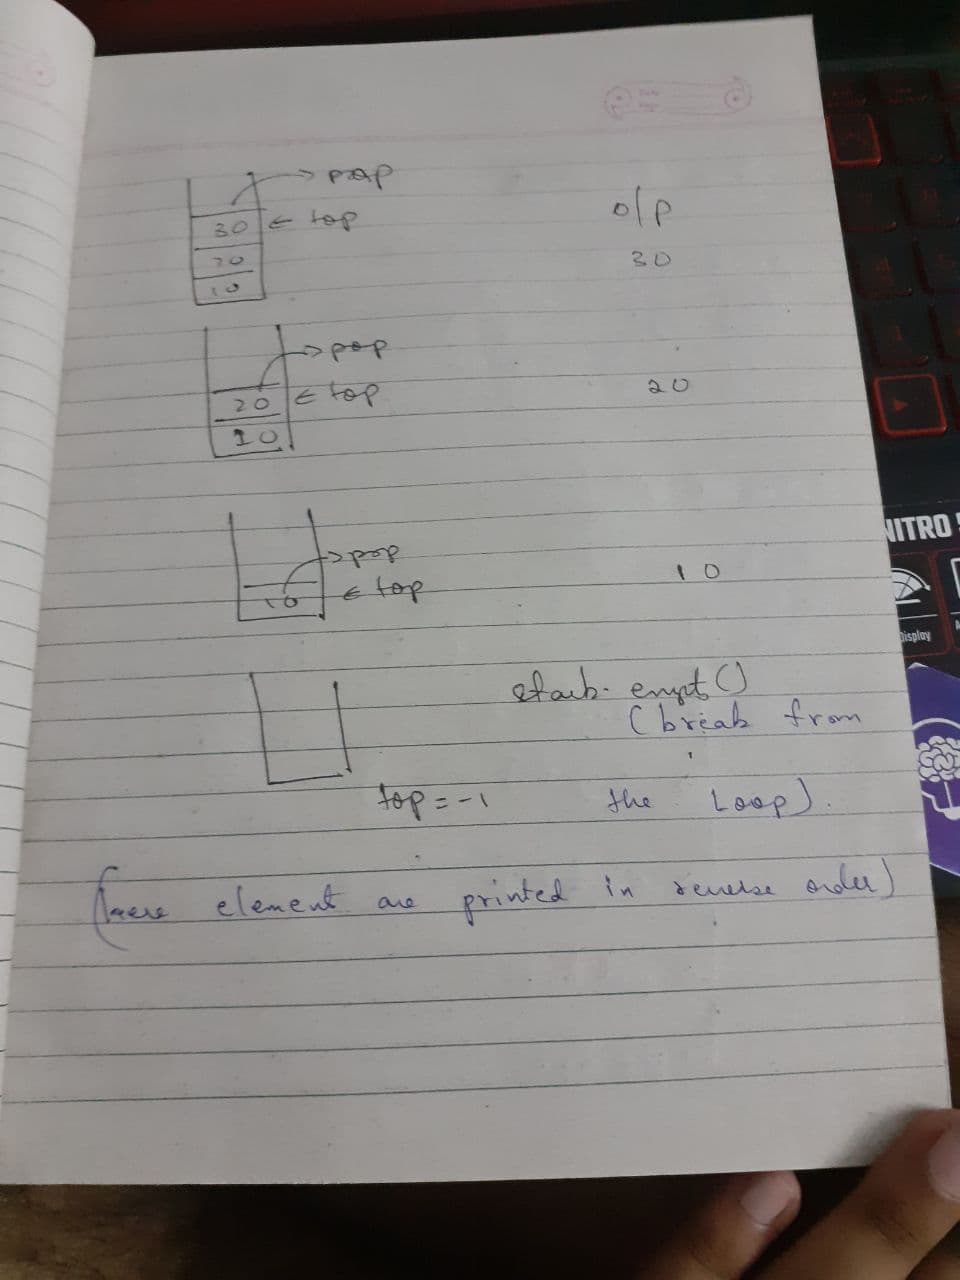 → pop
30 ← top o/p
20 30
10
→ pop
20 ← top 20
10
→ pop
10 ← top 10
stack. empt()
(break from
top = -1 the Loop).
(here element are printed in reverse order)
NITRO 5
Display